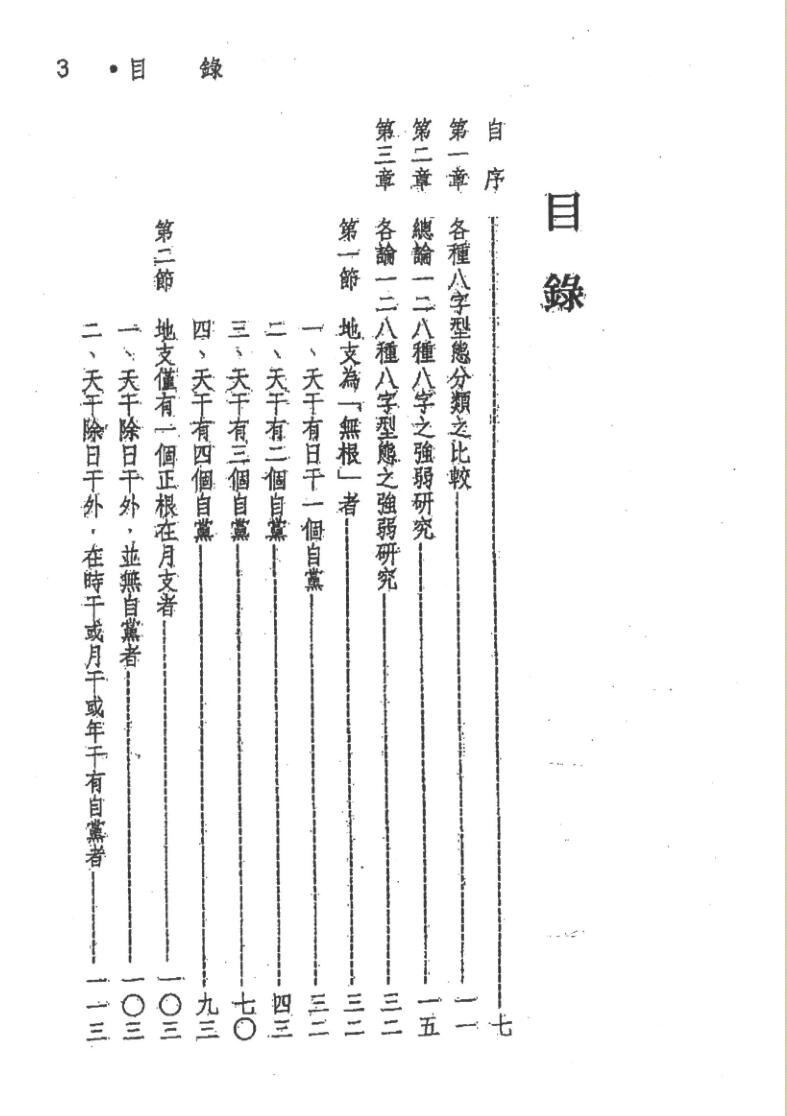 3 •目 錄
目 錄
自 序 七
第一章 各種八字型態分類之比較 一一
第二章 總論一二八種八字之強弱研究 一五
第三章 各論一二八種八字型態之強弱研究 三二
第一節 地支為「無根」者 三二
一、天干有日干一個自黨 三二
二、天干有二個自黨 四三
三、天干有三個自黨 七〇
四、天干有四個自黨 九三
第二節 地支僅有一個正根在月支者 一〇三
一、天干除日干外,並無自黨者 一〇三
二、天干除日干外,在時干或月干或年干有自黨者 一一三